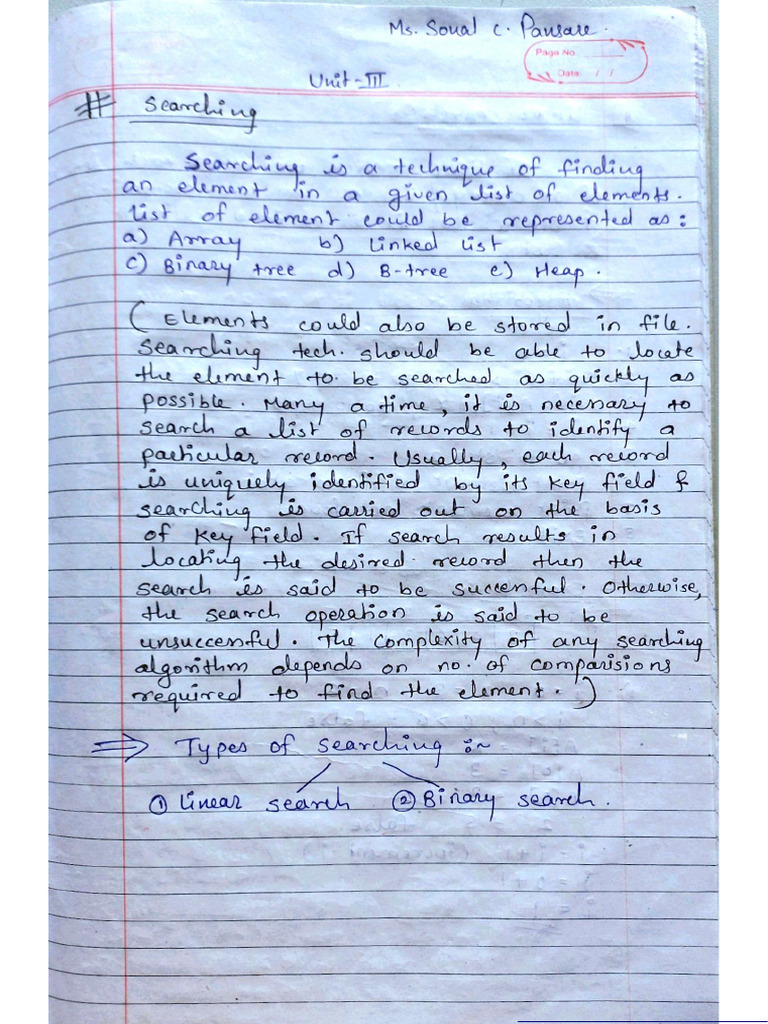 Ms. Sonal C. Pansare.
Page No.
Date: / /
Unit-III
# Searching
Searching is a technique of finding
an element in a given list of elements.
list of element could be represented as:
a) Array b) Linked list
c) Binary tree d) B-tree e) Heap.
( Elements could also be stored in file.
searching tech. should be able to locate
the element to be searched as quickly as
possible. Many a time, it is necessary to
search a list of records to identify a
particular record. Usually, each record
is uniquely identified by its key field &
searching is carried out on the basis
of key field. If search results in
locating the desired record then the
search is said to be successful. Otherwise,
the search operation is said to be
unsuccessful. The complexity of any searching
algorithm depends on no. of comparisions
required to find the element. )
⇒ Types of searching :~
① Linear search ② Binary search.